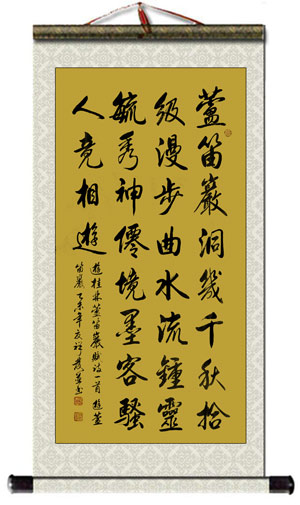 蘆笛巖洞幾千秋拾
級漫步曲水流鍾靈
毓秀神僊境墨客騷
人竟相遊
遊桂林蘆笛巖賦詩一首
笛巖乙未年